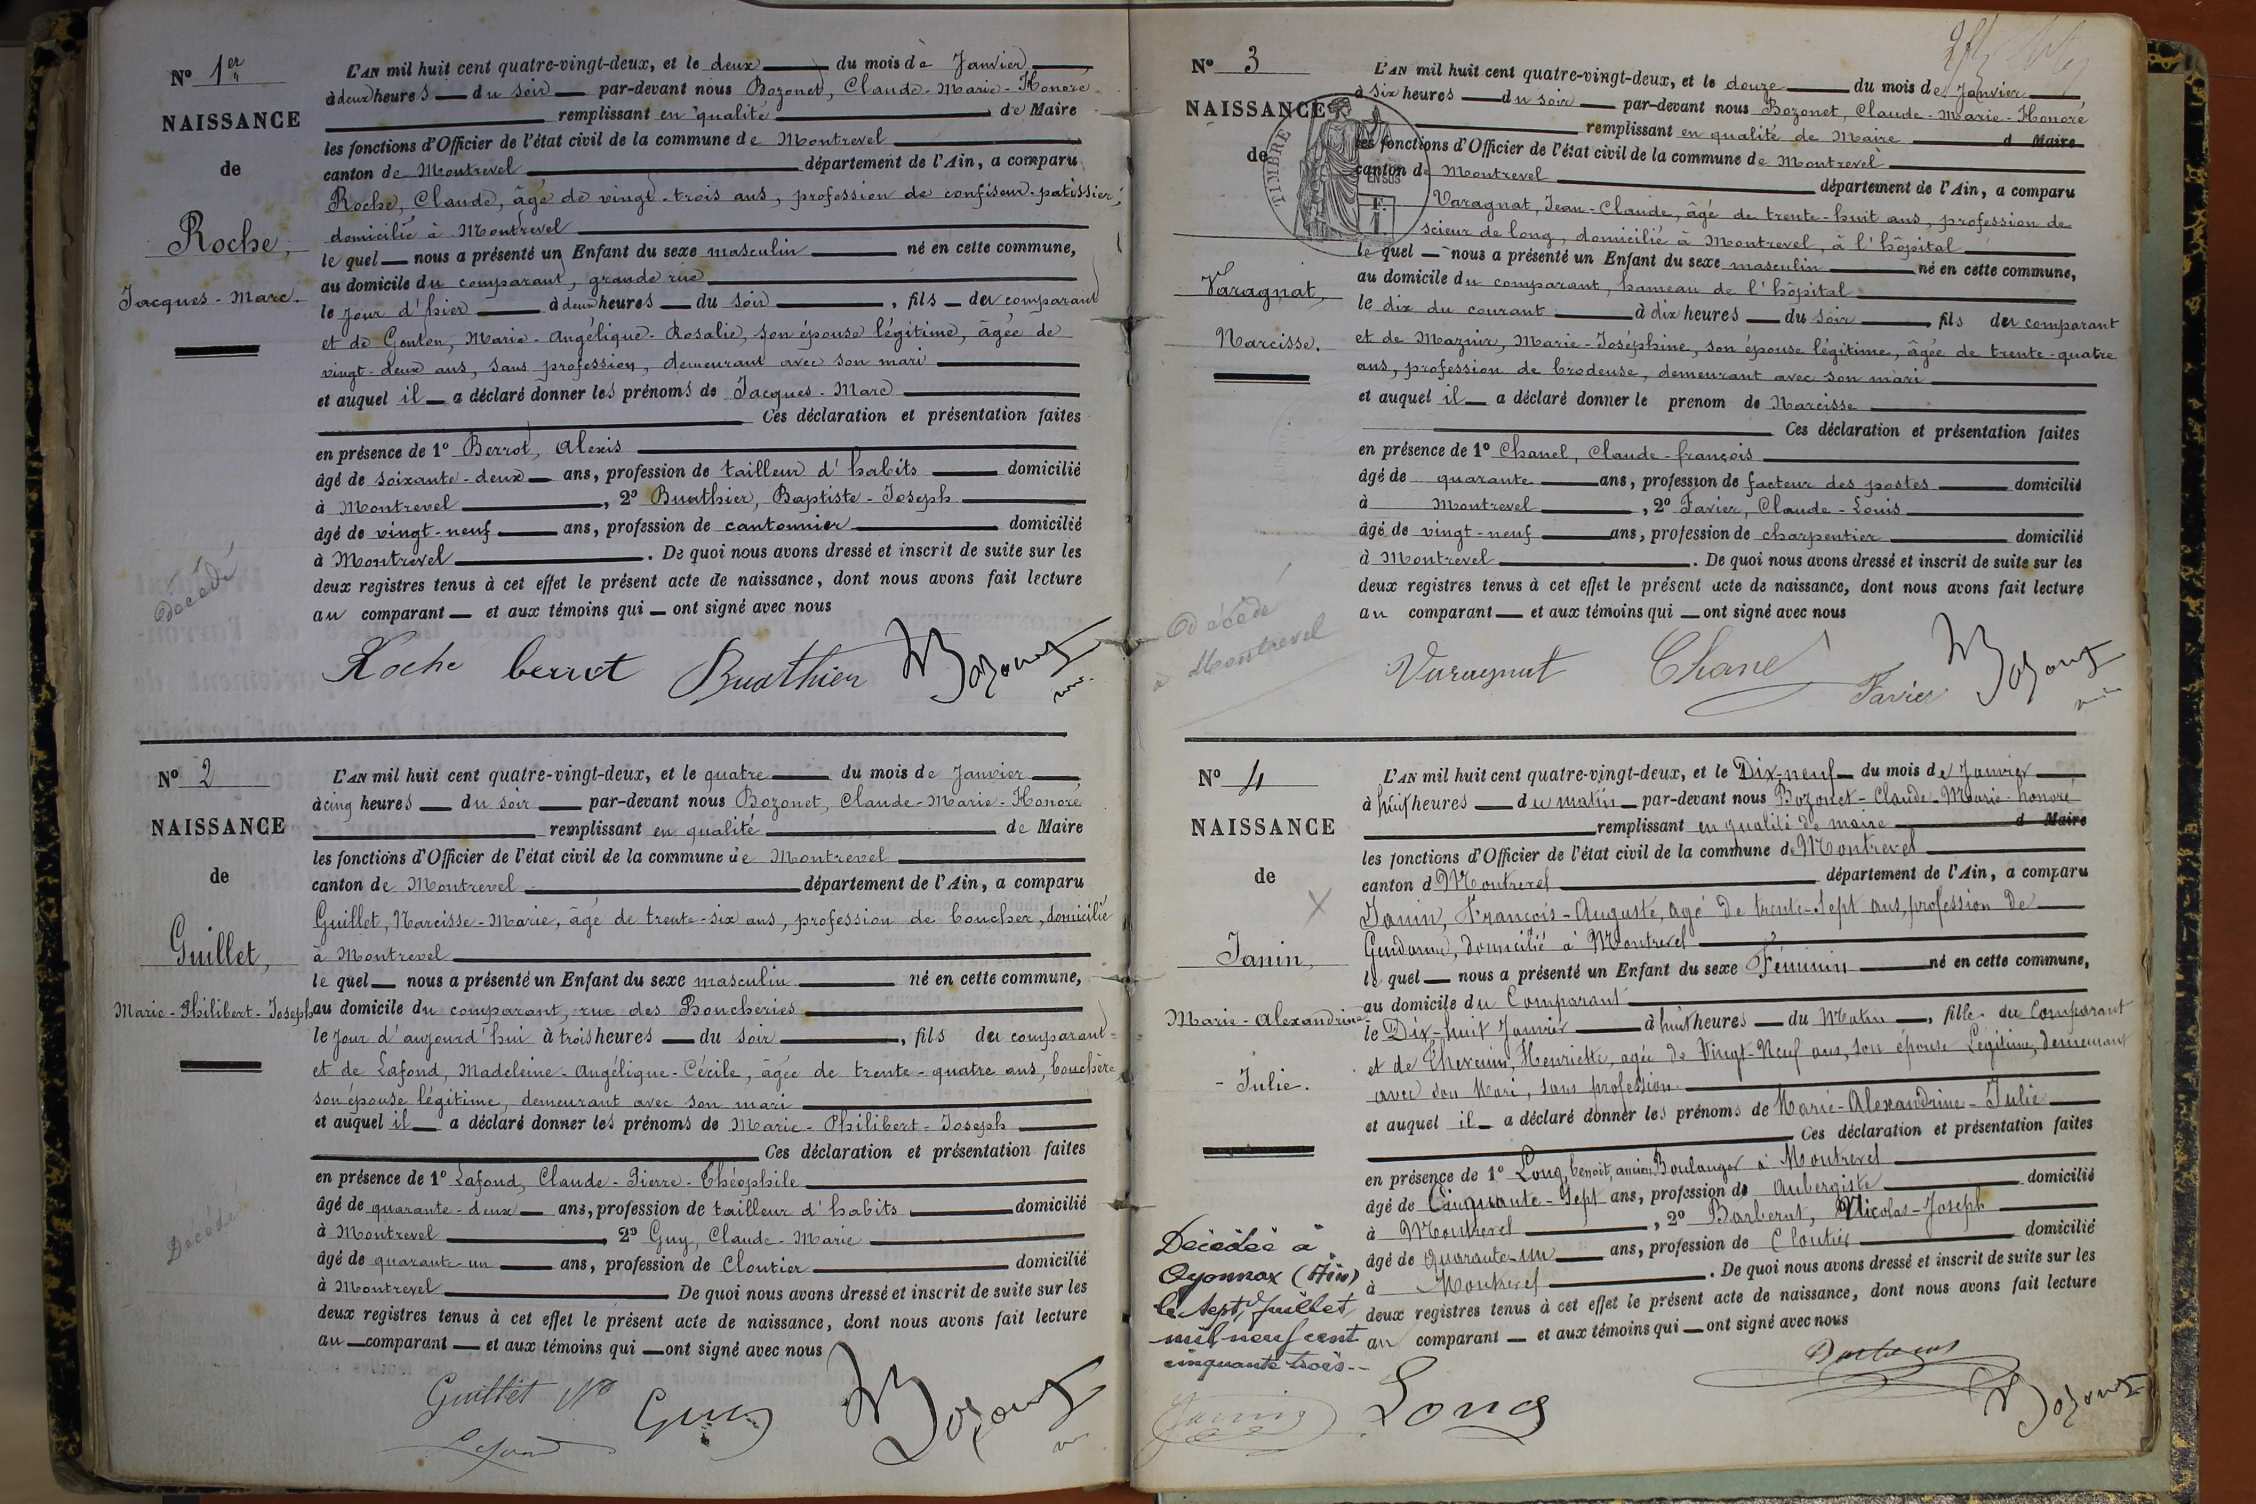 Nº 1er
NAISSANCE
de
Roche,
Jacques-Marc.
Décédé
L'AN mil huit cent quatre-vingt-deux, et le deux du mois de Janvier
à deux heures du soir par-devant nous Bozonet, Claude-Marie-Honoré
remplissant en qualité de Maire
les fonctions d'Officier de l'état civil de la commune de Montrevel
canton de Montrevel département de l'Ain, a comparu
Roche, Claude, âgé de vingt-trois ans, profession de confiseur-patissier,
domicilié à Montrevel
le quel nous a présenté un Enfant du sexe masculin né en cette commune,
au domicile du comparant, grande rue
le jour d'hier à deux heures du soir, fils du comparant
et de Gonlen, Marie-Angélique-Rosalie, son épouse légitime, âgée de
vingt-deux ans, sans profession, demeurant avec son mari
et auquel il a déclaré donner les prénoms de Jacques-Marc
Ces déclaration et présentation faites
en présence de 1º Berrot, Alexis
âgé de soixante-deux ans, profession de tailleur d'habits domicilié
à Montrevel, 2º Buathier, Baptiste-Joseph
âgé de vingt-neuf ans, profession de cantonnier domicilié
à Montrevel. De quoi nous avons dressé et inscrit de suite sur les
deux registres tenus à cet effet le présent acte de naissance, dont nous avons fait lecture
au comparant et aux témoins qui ont signé avec nous
Roche berrot Buathier Bozonet
Nº 2
NAISSANCE
de
Guillet,
Marie-Philibert-Joseph
Décédé
L'AN mil huit cent quatre-vingt-deux, et le quatre du mois de Janvier
à cinq heures du soir par-devant nous Bozonet, Claude-Marie-Honoré
remplissant en qualité de Maire
les fonctions d'Officier de l'état civil de la commune de Montrevel
canton de Montrevel département de l'Ain, a comparu
Guillet, Narcisse-Marie, âgé de trente-six ans, profession de boucher, domicilié
à Montrevel
le quel nous a présenté un Enfant du sexe masculin né en cette commune,
au domicile du comparant, rue des Boucheries
le jour d'aujourd'hui à trois heures du soir, fils du comparant
et de Lafond, Madeleine-Angélique-Cécile, âgée de trente-quatre ans, bouchère
son épouse légitime, demeurant avec son mari
et auquel il a déclaré donner les prénoms de Marie-Philibert-Joseph
Ces déclaration et présentation faites
en présence de 1º Lafond, Claude-Pierre-Théophile
âgé de quarante-deux ans, profession de tailleur d'habits domicilié
à Montrevel 2º Guy, Claude-Marie
âgé de quarante-un ans, profession de Cloutier domicilié
à Montrevel De quoi nous avons dressé et inscrit de suite sur les
deux registres tenus à cet effet le présent acte de naissance, dont nous avons fait lecture
au comparant et aux témoins qui ont signé avec nous
Guillet Guy Bozonet
Lafond
Nº 3
NAISSANCE
de
TIMBRE
EN SUS
Varagnat,
Narcisse.
Décédé
à Montrevel
L'AN mil huit cent quatre-vingt-deux, et le douze du mois de Janvier
à six heures du soir par-devant nous Bozonet, Claude-Marie-Honoré
remplissant en qualité de Maire d Maire
les fonctions d'Officier de l'état civil de la commune de Montrevel
canton de Montrevel département de l'Ain, a comparu
Varagnat, Jean-Claude, âgé de trente-huit ans, profession de
scieur de long, domicilié à Montrevel, à l'hôpital
le quel nous a présenté un Enfant du sexe masculin né en cette commune,
au domicile du comparant, hameau de l'hôpital
le dix du courant à dix heures du soir, fils du comparant
et de Maznir, Marie-Joséphine, son épouse légitime, âgée de trente-quatre
ans, profession de brodeuse, demeurant avec son mari
et auquel il a déclaré donner le prenom de Narcisse
Ces déclaration et présentation faites
en présence de 1º Chanel, Claude-françois
âgé de quarante ans, profession de facteur des postes domicilié
à Montrevel, 2º Favier, Claude-Louis
âgé de vingt-neuf ans, profession de charpentier domicilié
à Montrevel. De quoi nous avons dressé et inscrit de suite sur les
deux registres tenus à cet effet le présent acte de naissance, dont nous avons fait lecture
au comparant et aux témoins qui ont signé avec nous
Varagnat Chanel Favier Bozonet
Nº 4
NAISSANCE
de
Janin,
Marie-Alexandrine
-Julie.
Décédée à
Oyonnax (Ain)
le sept Juillet
mil neuf cent
cinquante trois
L'AN mil huit cent quatre-vingt-deux, et le Dix-neuf du mois de Janvier
à huit heures du matin par-devant nous Bozonet-Claude-Marie-honoré
remplissant en qualité de maire d Maire
les fonctions d'Officier de l'état civil de la commune de Montrevel
canton d Montrevel département de l'Ain, a comparu
Janin, François-Auguste, agé de trente-sept ans, profession de
Gendarme, domicilié à Montrevel
le quel nous a présenté un Enfant du sexe Féminin né en cette commune,
au domicile du Comparant
le Dix-huit Janvier à huit heures du Matin, fille du Comparant
et de Thevenin, Henriette, agée de Vingt-Neuf ans, son épouse Légitime, demeurant
avec son Mari, sans profession
et auquel il a déclaré donner les prénoms de Marie-Alexandrine-Julie
Ces déclaration et présentation faites
en présence de 1º Long, benoit, ancien Boulanger à Montrevel
âgé de Cinquante-Sept ans, profession de Aubergiste domicilié
à Montrevel, 2º Barberat, Nicolas-Joseph
âgé de Quarante-un ans, profession de Cloutier domicilié
à Montrevel. De quoi nous avons dressé et inscrit de suite sur les
deux registres tenus à cet effet le présent acte de naissance, dont nous avons fait lecture
au comparant et aux témoins qui ont signé avec nous
Janin Long Bozonet